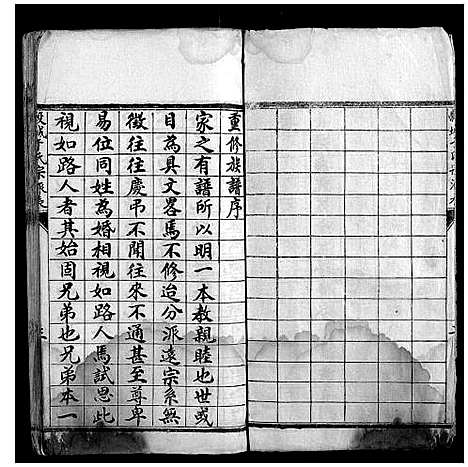 重修族譜序
家之有譜所以明一本教親睦也世或
目為具文畧焉不修迨分派遠宗系無
徵往往慶弔不聞往來不通甚至尊卑
易位同姓為婚相視如路人焉試思此
視如路人者其始固兄弟也兄弟本一